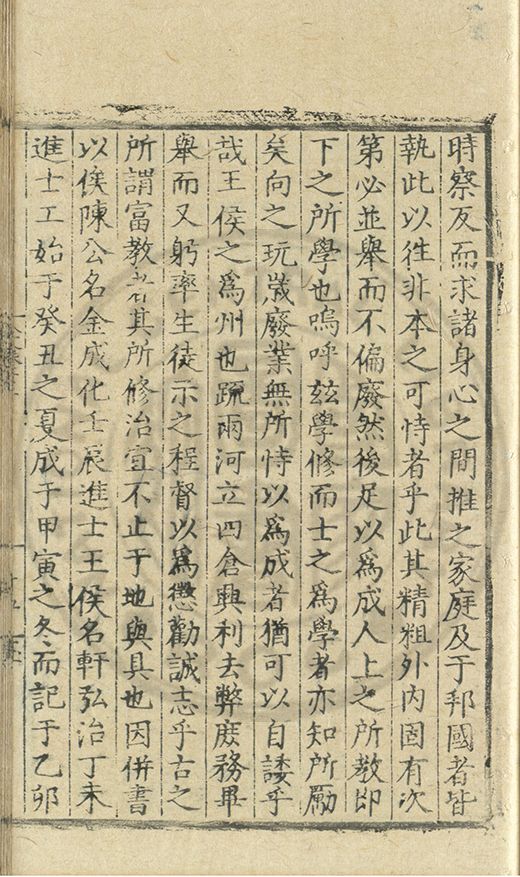 時察反而求諸身心之間推之家庭及于邦國者皆
執此以往非本之可恃者乎此其精粗外内固有次
第必並舉而不偏廢然後足以爲成人上之所教即
下之所學也嗚呼玆學修而士之爲學者亦知所勵
矣向之玩歲廢業無所恃以爲成者猶可以自諉乎
哉王侯之爲州也疏兩河立四倉興利去弊庶務畢
舉而又躬率生徒示之程督以爲懲勸誠志乎古之
所謂富教者其所修治宜不止于地與具也因併書
以俟陳公名金成化壬辰進士王侯名軒弘治丁未
進士工始于癸丑之夏成于甲寅之冬而記于乙卯